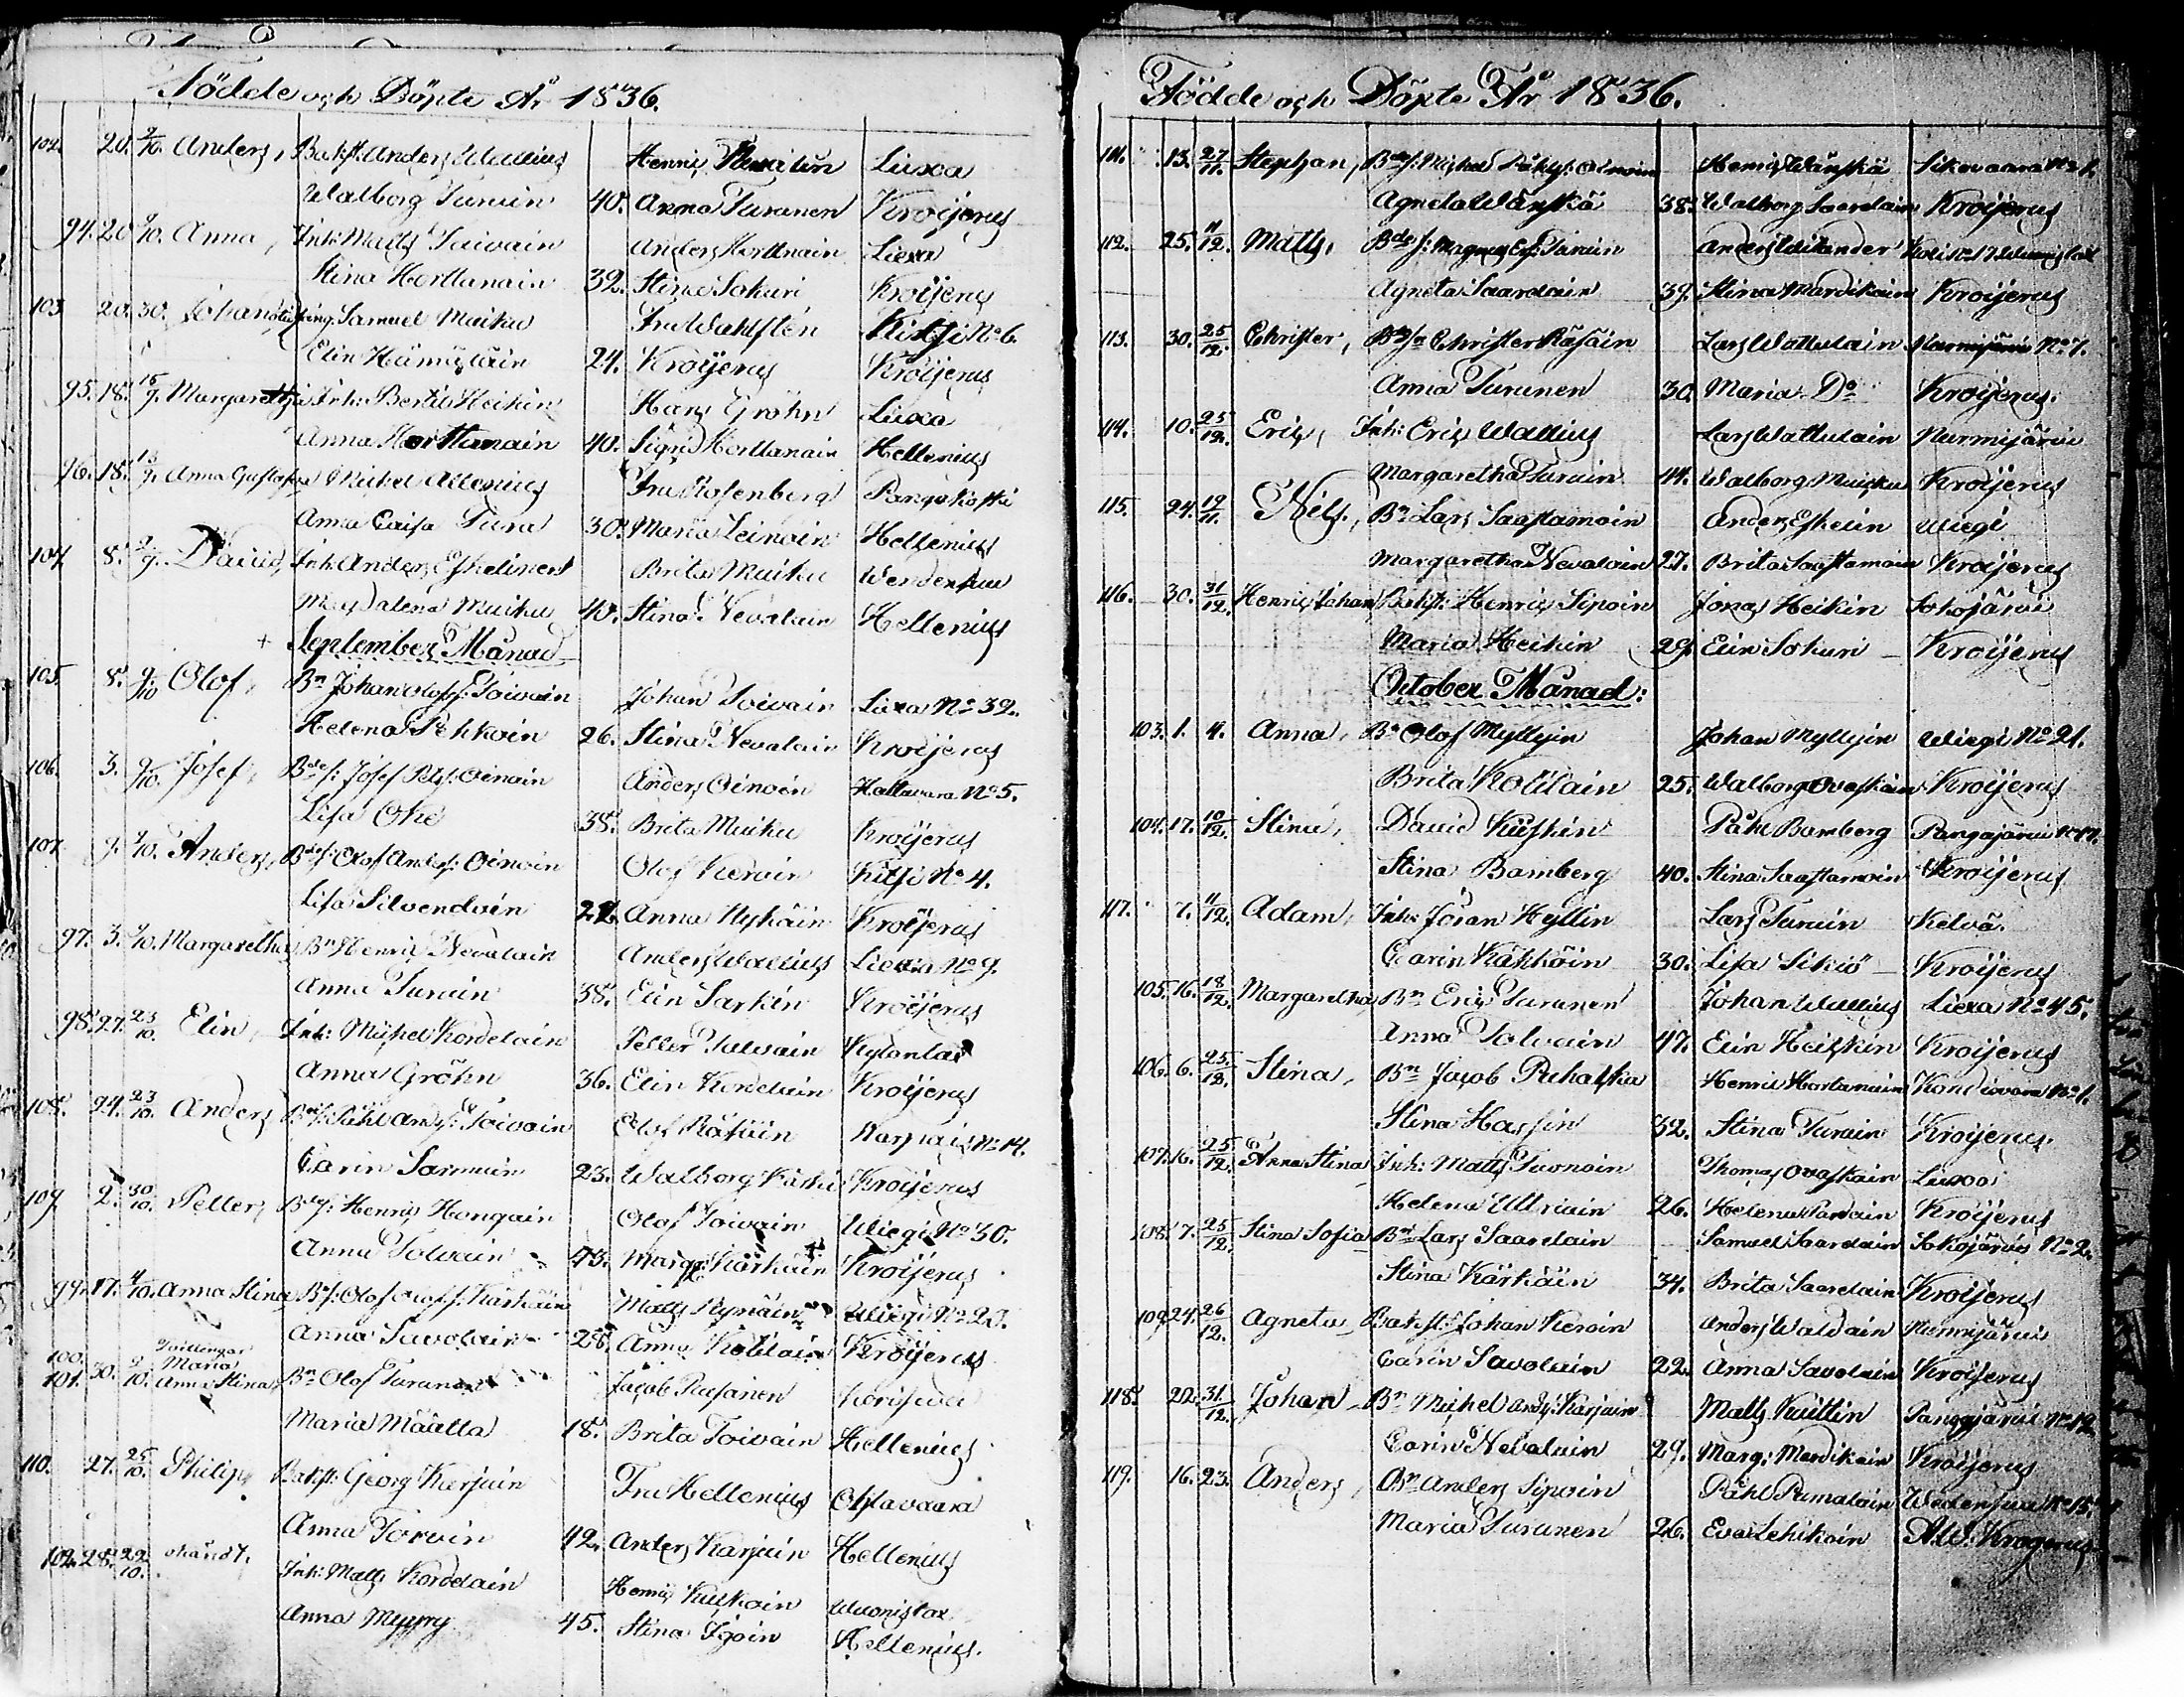 Födde och Döpte År 1836.
102. 20. 2/10. Anders, Bakst: Anders Wallius Henric Liexa
Walborg Turuin 40. Anna Turunen Kroijerus
94. 20 2/10. Anna, Inh: Matts Toivain Anders Horttanain Liexa
Stina Horttanain 32. Stina Sokuri Kroijerus
103 20. 30. Johan Samuel Muiku Fru Wahlstén Kitsi No 6.
Elin Hämäläin 24. Kroijerus Kroijerus
95. 18. 15/9. Margaretha Inh: Bertil Heikin Hans Gröhn Liexa
Anna Horttanain 40. Sigri Horttanain Hellenius
96. 18. 13/9. Anna Gustafva Michel Allenius Fru Rosenberg Pangakoski
Anna Caisa Tura 30. Maria Leinoin Hellenius
104 8. 2/9. David, Inh: Anders Eskelinen Brita Muiku
Magdalena Muiku 40. Stina Nevalain Hellenius
+ September Månad
105. 8. 9/10 Olof, Bn Johan Olofs: Toivain Johan Toivain Liexa No 32.
Helena Pehkoin 26. Stina Nevalain Kroijerus
106. 3. 9/10. Josef, Bdes: Josef Oinoin Anders Oinoin Hattuvara No 5.
Lisa Oke 38. Brita Muiku Kroijerus
107. 9. 9/10. Anders, Bdes: Olof Anders: Oinoin Olof Keroin Kitsi No 4.
Lisa Silvendoin 22. Anna Nykäin Kroijerus
97. 3. 9/10. Margaretha Bn Henric Nevalain Anders Wallius Liexa No 9.
Anna Turuin 38. Elin Sarkin Kroijerus
98. 27. 23/10. Elin, Inh: Michel Kordelain Petter Kylanlax
Anna Gröhn 36. Elin Kordelain Kroijerus
108. 24. 23/10. Anders Påhl Ands: Toivain Olof Räsäin No 14.
Carin Sarmuin 23. Walborg Kroijerus
109 2. 30/10. Petter, Henric Hongain Olof Toivain Wiegi No 30.
Anna Tolvain 43. Marg: Kärkäin Kroijerus
99. 17. 9/10. Anna Stina Olof Olofs: Kärkäin Matts Rynäin Wiegi No 23.
Anna Savolain 28. Anna Kotilain Kroijerus
Tvillingar
100. Maria
101. 30. 2/10. Anna Stina Bn Olof Turunen Jacob Räsänen
Maria Määttä 18. Brita Toivain Hellenius
110. 27. 25/10. Philip, Bakst: Georg Karjain Fru Hellenius
Anna Torvin 42. Anders Karjain Hellenius
102. 28. 22/10. Inh: Matts Kordelain Henric Wuonislax
Anna Myyry 45. Stina Hellenius.
Födde och Döpte År 1836.
111. 13. 27/11. Stephan, Bdes: Michel Påhls: Oinoin Henric Wänskä Sikovaara No 1.
Agneta Wänskä 38. Walborg Saarelain Kroijerus
112. 25. 11/12. Matts, Bdes: Magnus Turuin Anders Koli No 17 Wuonislax
Agneta Saarelain 39. Stina Mardikain Kroijerus
113. 30. 25/12. Christer, Christer Räsäin Lars Wattulain Nurmijärvi No 7.
Anna Turunen 30 Maria Do Kroijerus.
114. 10. 25/12. Eric, Inh: Eric Wallius Lars Wattulain Nurmijärvi
Margaretha Turuin 44. Walborg Muicku Kroijerus
115. 24. 19/11. Nils, Bn Lars Saastamoin Anders Eskelin Wiegi
Margaretha Nevalain 27. Brita Saastamoin Kroijerus
116. 30. 31/12. Henric Johan Bakst: Henric Sipoin Jonas Heikin Jokojärvi
Maria Heikin 29. Elin Sokuri Kroijerus
October Månad:
103. 1. 4. Anna, Bn Olof Myllyin Johan Myllyin Wiegi No 21.
Brita Kotilain 25. Walborg Ovaskain Kroijerus
104. 17. 10/12. Stina, David Kiiskin Påhl Bamberg Pangajärvi No 17.
Stina Bamberg 40. Stina Saastamoin Kroijerus
117. 7. 11/12. Adam, Inh: Jöran Hyllin Lars Turuin Kelvä.
Carin Kähköin 30. Lisa Sikiö Kroijerus
105. 16. 18/12. Margaretha, Bn Eric Turunen Johan Wallius Liexa No 45.
Anna Tolvain 47. Elin Heiskin Kroijerus
106. 6. 25/12. Stina, Bn Jacob Puhakka Henric Hortanain Kondiovaara No 1.
Stina Hassin 32. Stina Turuin Kroijerus.
107. 16. 25/12. Anna Stina Inh: Matts Turonoin Thomas Ovaskain Liexa
Helena Ullriain 26. Helena Kroijerus
108. 7. 25/12. Stina Sofia Bn Lars Saarelain Samuel Saarelain Jokojärvi No 2.
Stina Kärkäin 34. Brita Saarelain Kroijerus
109 24. 26/12. Agneta Bakst: Johan Keroin Anders Waldain Nurmijärvi
Carin Savolain 22. Anna Savolain Kroijerus
118. 22. 31/12. Johan Bn Michel Ands: Karjain Matts Kuittin Pangajärvi No 12
Carin Nevalain 29. Marg: Mardikain Kroijerus
119. 16. 23. Anders, Bn Anders Sipoin Påhl Pumalain No 15.
Maria Turunen 26. Eva Lehikoin A.W. Krogerus